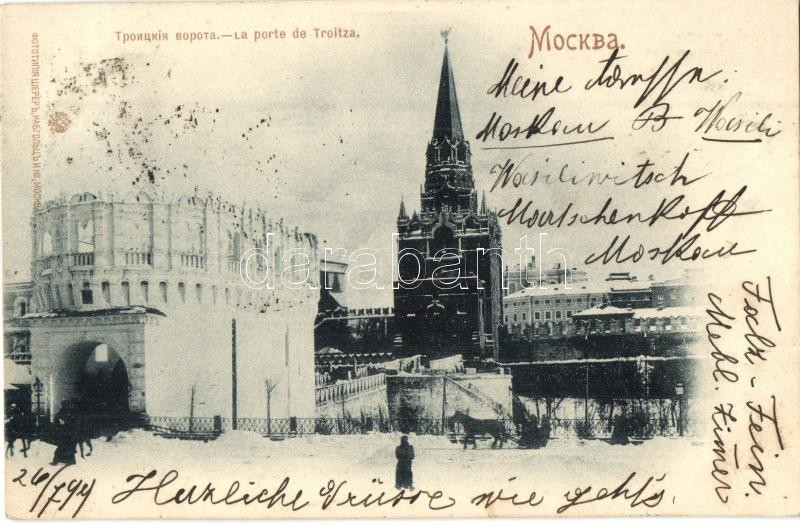 Троицкія ворота.—La porte de Troitza.
Москва.
ФОТОТИПІЯ ШЕРЕРЪ, НАБГОЛЬЦЪ И Кº, МОСКВА
Meine Adresse.
Moskau B Wasili
Wasiliwitsch
Martschenkoff
Moskau
darabanth
Falz-Fein.
Mebl. Zimer
Herzliche Grüsse wie geht's.